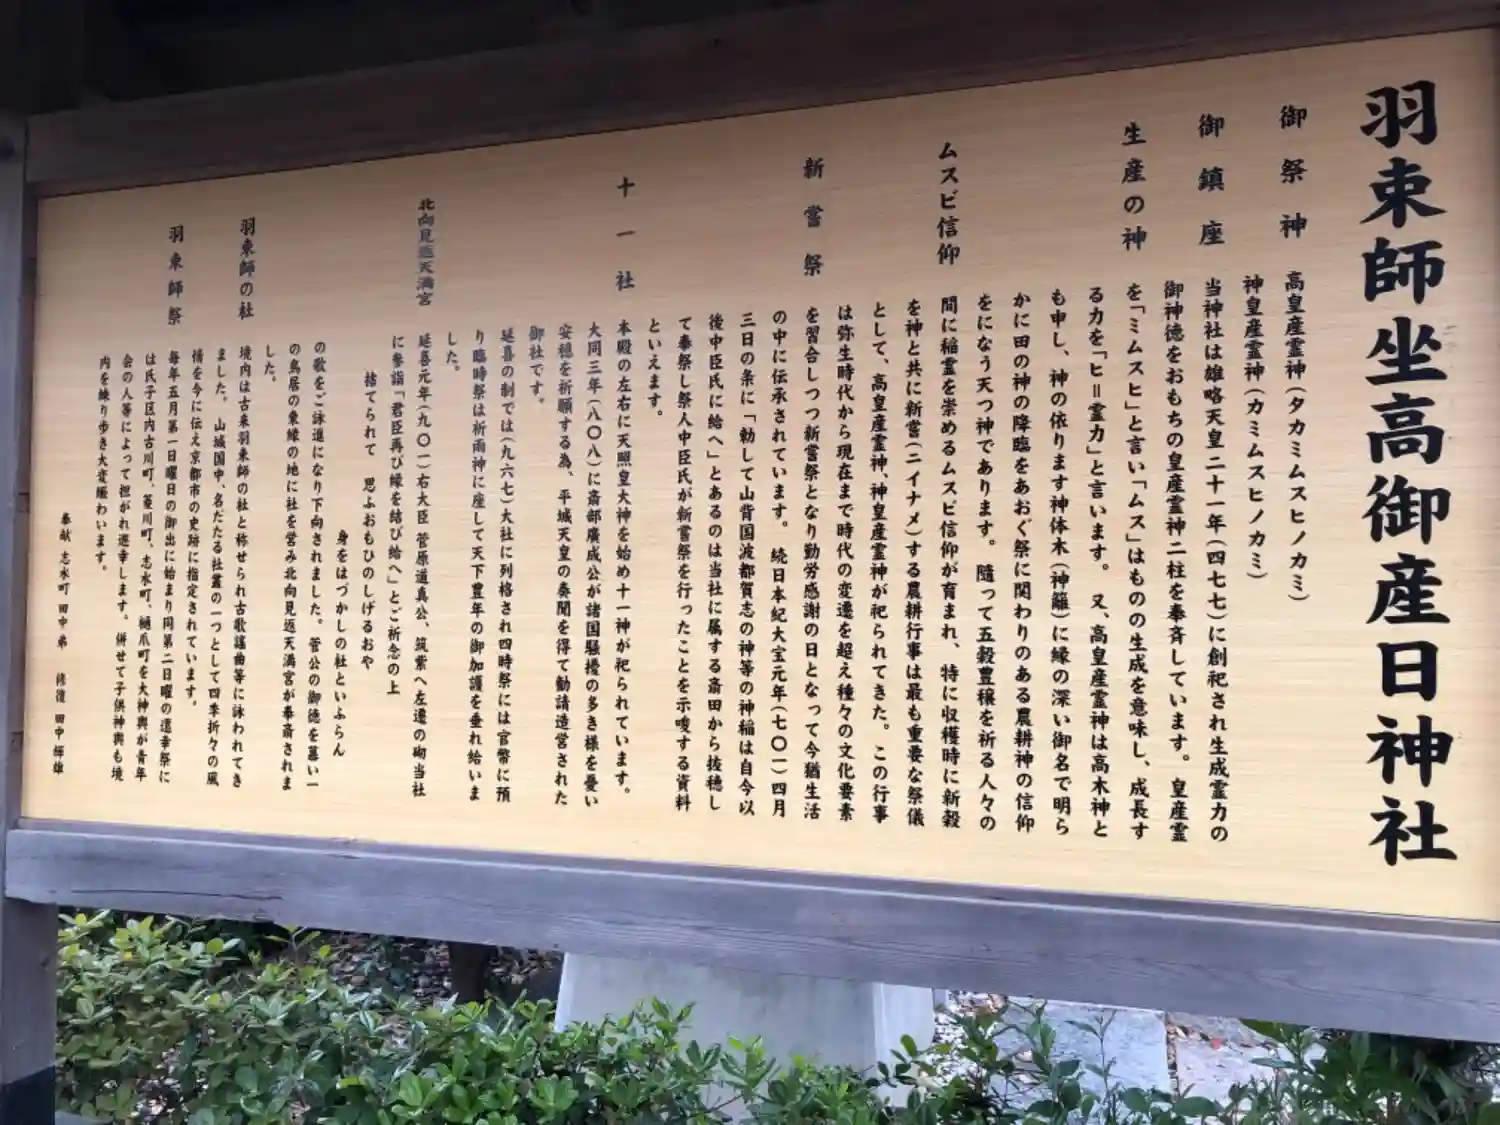 羽束師坐高御産日神社
御祭神 高皇産霊神(タカミムスヒノカミ)
神皇産霊神(カミムスヒノカミ)
御鎮座 当神社は雄略天皇二十一年(四七七)に創祀され生成霊力の
御神徳をおもちの皇産霊神二柱を奉斉しています。皇産霊
生産の神 を「ミムスヒ」と言い「ムス」はものの生成を意味し、成長す
る力を「ヒ=霊力」と言います。又、高皇産霊神は高木神と
も申し、神の依ります神体木(神籬)に縁の深い御名で明ら
かに田の神の降臨をあおぐ祭に関わりのある農耕神の信仰
をになう天つ神であります。随って五穀豊穣を祈る人々の
ムスビ信仰 間に稲霊を崇めるムスビ信仰が育まれ、特に収穫時に新穀
を神と共に新嘗(ニイナメ)する農耕行事は最も重要な祭儀
として、高皇産霊神、神皇産霊神が祀られてきた。この行事
は弥生時代から現在まで時代の変遷を超え種々の文化要素
新嘗祭 を習合しつつ新嘗祭となり勤労感謝の日となって今猶生活
の中に伝承されています。続日本紀大宝元年(七〇一)四月
三日の条に「勅して山背国波都賀志の神等の神稲は自今以
後中臣氏に給へ」とあるのは当社に属する斎田から抜穂し
て奉祭し祭人中臣氏が新嘗祭を行ったことを示唆する資料
といえます。
十一社 本殿の左右に天照皇大神を始め十一神が祀られています。
大同三年(八〇八)に斎部廣成公が諸国騒擾の多き様を憂い
安穏を祈願する為、平城天皇の奏聞を得て勧請造営された
御社です。
延喜の制では(九六七)大社に列格され四時祭には官幣に預
り臨時祭は祈雨神に座して天下豊年の御加護を垂れ給いま
した。
北向見返天満宮 延喜元年(九〇一)右大臣 菅原道真公、筑紫へ左遷の砌当社
に参詣「君臣再び縁を結び給へ」とご祈念の上
捨てられて 思ふおもひのしげるおや
身をはづかしの社といふらん
の歌をご詠進になり下向されました。菅公の御徳を慕い一
の鳥居の東縁の地に社を営み北向見返天満宮が奉斎されま
した。
羽束師の社 境内は古来羽束師の社と称せられ古歌謡曲等に詠われてき
ました。山城国中、名だたる社叢の一つとして四季折々の風
情を今に伝え京都市の史跡に指定されています。
羽束師祭 毎年五月第一日曜日の御出に始まり同第二日曜の還幸祭に
は氏子区内古川町、菱川町、志水町、樋爪町を大神輿が青年
会の人等によって担がれ巡幸します。併せて子供神輿も境
内を練り歩き大変賑わいます。
奉献 志水町 田中 弟 修復 田中 輝雄